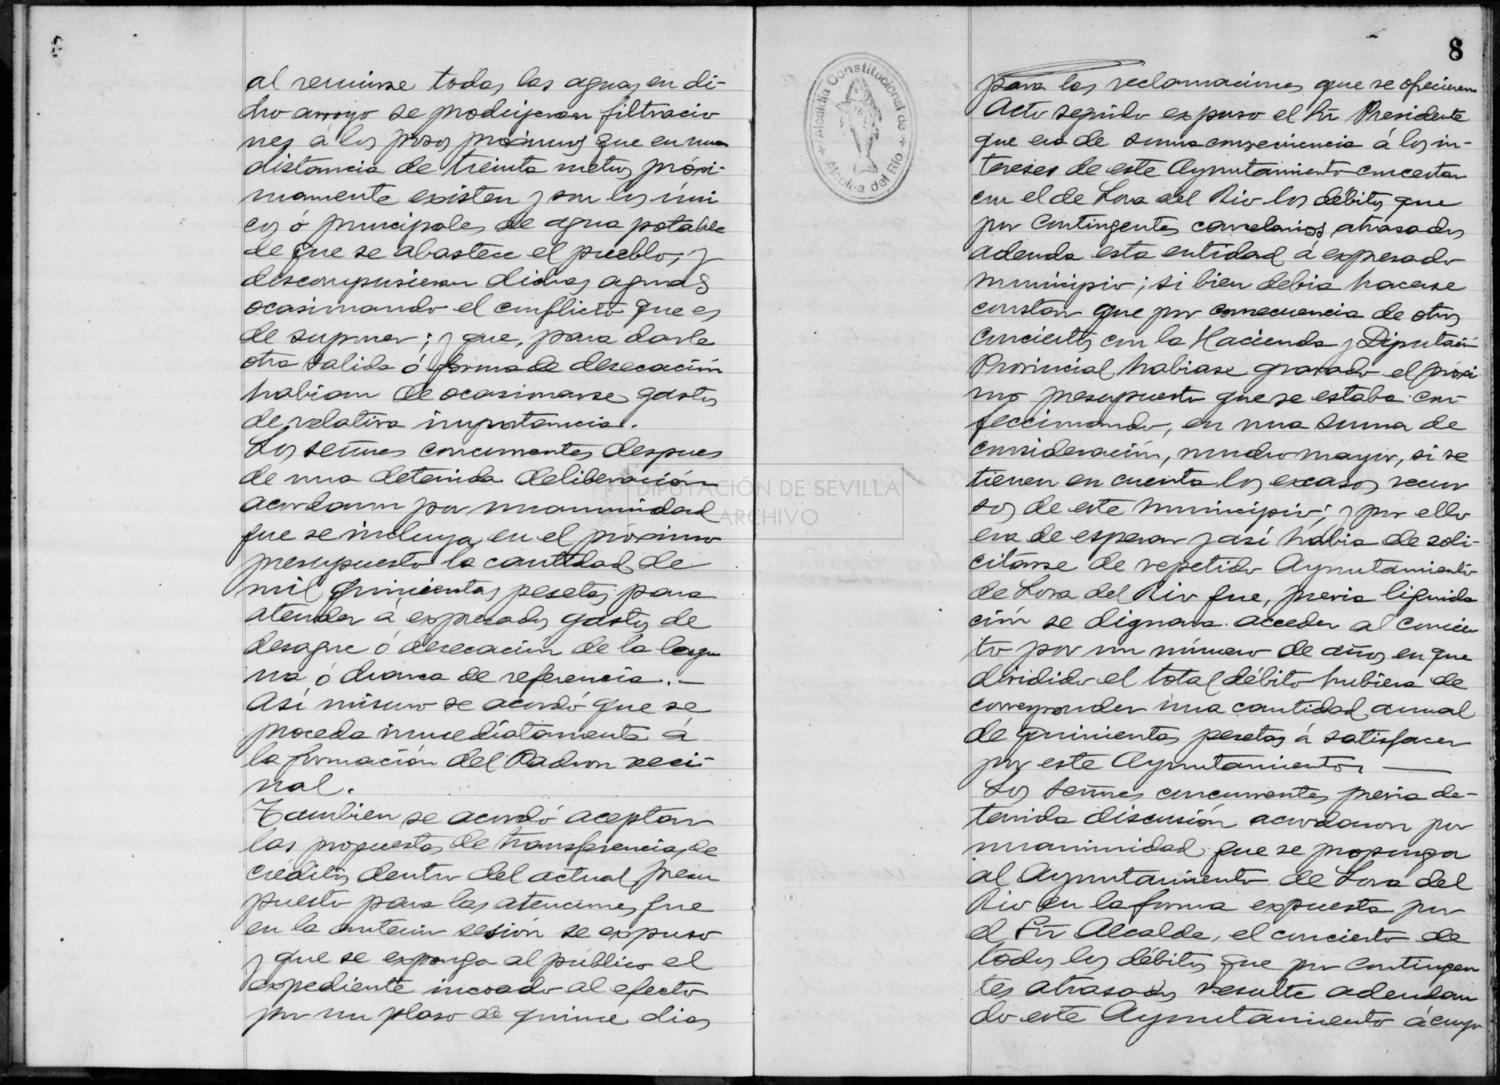 al reunirse todas las aguas en di-
cho arroyo se produjeran filtracio
nes á los pozos próximos que en una
distancia de treinta metros próxi-
mamente existen y son los úni
cos ó principales de agua potable
de que se abastece el pueblo, y
descompusieran dichas aguas
ocasionando el conflicto que es
de suponer; y que, para darle
otra salida ó forma de desecación
habian de ocasionarse gastos
de relativa importancia.
Los señores concurrentes despues
de una detenida deliberación
acordaron por unanimidad
que se incluya en el próximo
presupuesto la cantidad de
mil quinientas pesetas para
atender á expresados gastos de
desague ó desecación de la lagu
na ó charca de referencia.—
Así mismo se acordó que se
proceda inmediatamente á
la formación del Padron veci-
nal.
Tambien se acordó aceptar
las propuestas de transferencia de
créditos dentro del actual presu
puesto para las atenciones que
en la anterior sesión se expuso
y que se exponga al público el
expediente incoado al efecto
por un plaso de quince dias
8
Alcaldia Constitucional de
Alcolea del Rio
para las reclamaciones que se ofrecieren
Acto seguido expuso el Sr. Presidente
que era de suma conveniencia á los in-
tereses de este Ayuntamiento concertar
con el de Lora del Rio los débitos que
por Contingentes carcelarios atrasados
adeuda esta entidad á expresado
municipio; si bien debia hacerse
constar que por consecuencia de otros
conciertos con la Hacienda y Diputación
Provincial habiase gravado el próxi
mo presupuesto que se estaba con-
feccionando, en una suma de
consideración, mucho mayor, si se
tienen en cuenta los escasos recur
sos de este municipio; y por ello
era de esperar y así habia de soli-
citarse de repetido Ayuntamiento
de Lora del Rio que, previa liquida
ción se dignara acceder al concier
to por un número de años en que
dividido el total débito hubiera de
corresponder una cantidad anual
de quinientas pesetas á satisfacer
por este Ayuntamiento. —
Los señores concurrentes previa de-
tenida discusión acordaron por
unanimidad que se proponga
al Ayuntamiento de Lora del
Rio en la forma expuesta por
el Sr. Alcalde, el concierto de
todos los débitos que por contingen
tes atrasados resulte adeudan
do este Ayuntamiento á cuyo
DIPUTACIÓN DE SEVILLA
ARCHIVO